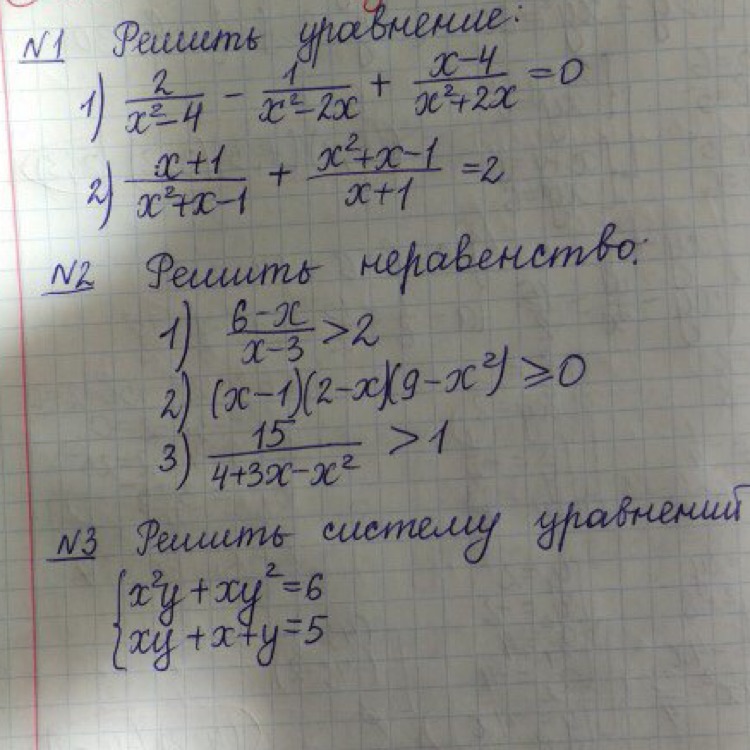 N1 Решить уравнение:
1) 2/(x²-4) - 1/(x²-2x) + (x-4)/(x²+2x) = 0
2) (x+1)/(x²+x-1) + (x²+x-1)/(x+1) = 2
N2 Решить неравенство:
1) (6-x)/(x-3) > 2
2) (x-1)(2-x)(9-x²) ≥ 0
3) 15/(4+3x-x²) > 1
N3 Решить систему уравнений
{x²y + xy² = 6
{xy + x + y = 5